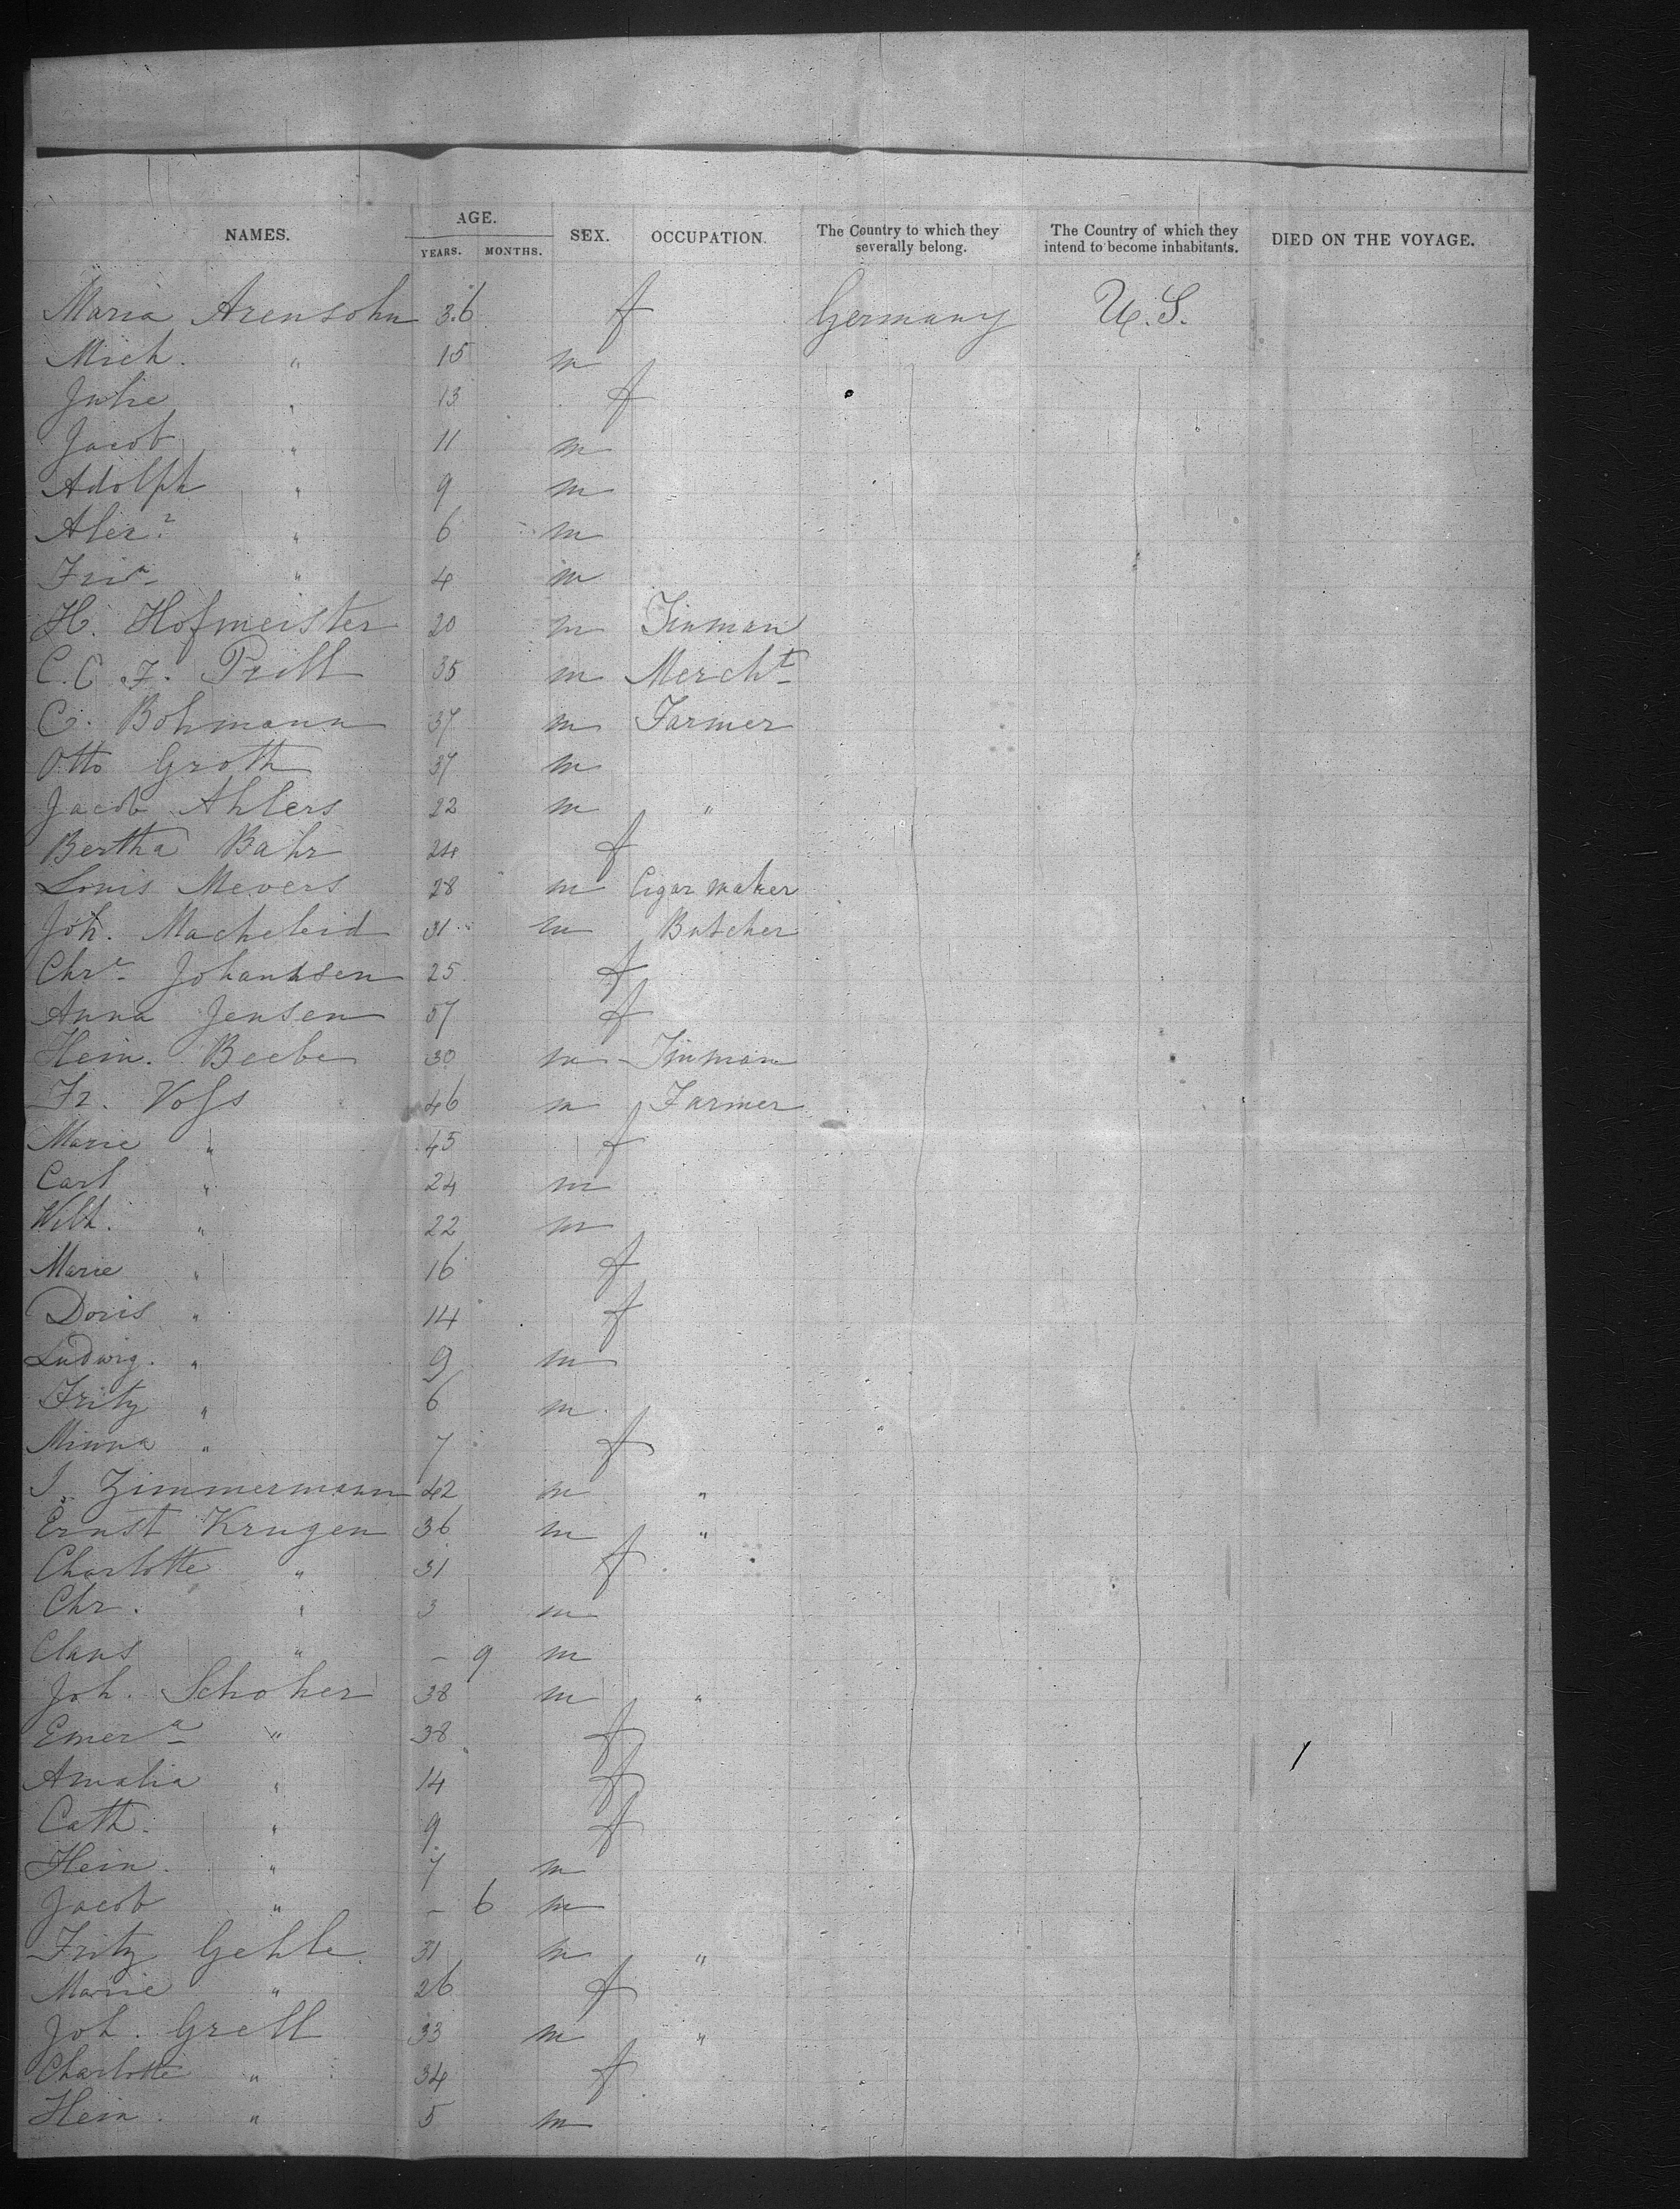 NAMES. AGE. YEARS. MONTHS. SEX. OCCUPATION. The Country to which they severally belong. The Country of which they intend to become inhabitants. DIED ON THE VOYAGE.
Maria Arensohn 36 f Germany U.S.
Mich. " 15 m
Julie " 13 f
Jacob " 11 m
Adolph " 9 m
Alexr " 6 m
" 4 m
H. Hofmeister 20 m Tinman
C. C. F. Prill 35 m Mercht
C. Bohmann 37 m Farmer
Otto Groth 37 m
Jacob Ahlers 22 m "
Bertha Bahr 24 f
Louis Mevers 28 m Cigar maker
Joh. Macheleid 31 m Butcher
Chre Johannsen 25 f
Anna Jensen 57 f
Hein. Beebe 30 m Tinman
Fr. Voss 46 m Farmer
Marie " 45 f
Carl " 24 m
Wilh. " 22 m
Marie " 16 f
Doris " 14 f
Ludwig. " 9 m
Fritz " 6 m
Minna " 7 f
J. Zimmermann 42 m "
Ernst Krugen 36 m "
Charlotte " 31 f
Chr. " 3 m
Claus " – 9 m
Joh. Schoker 38 m "
Emera " 38 f
Amalia " 14 f
Cath. " 9 f
Hein. " 7 m
Jacob " – 6 m
Fritz Gehle 31 m "
Marie " 26 f
Joh. Grell 33 m "
Charlotte " 34 f
Hein. " 5 m